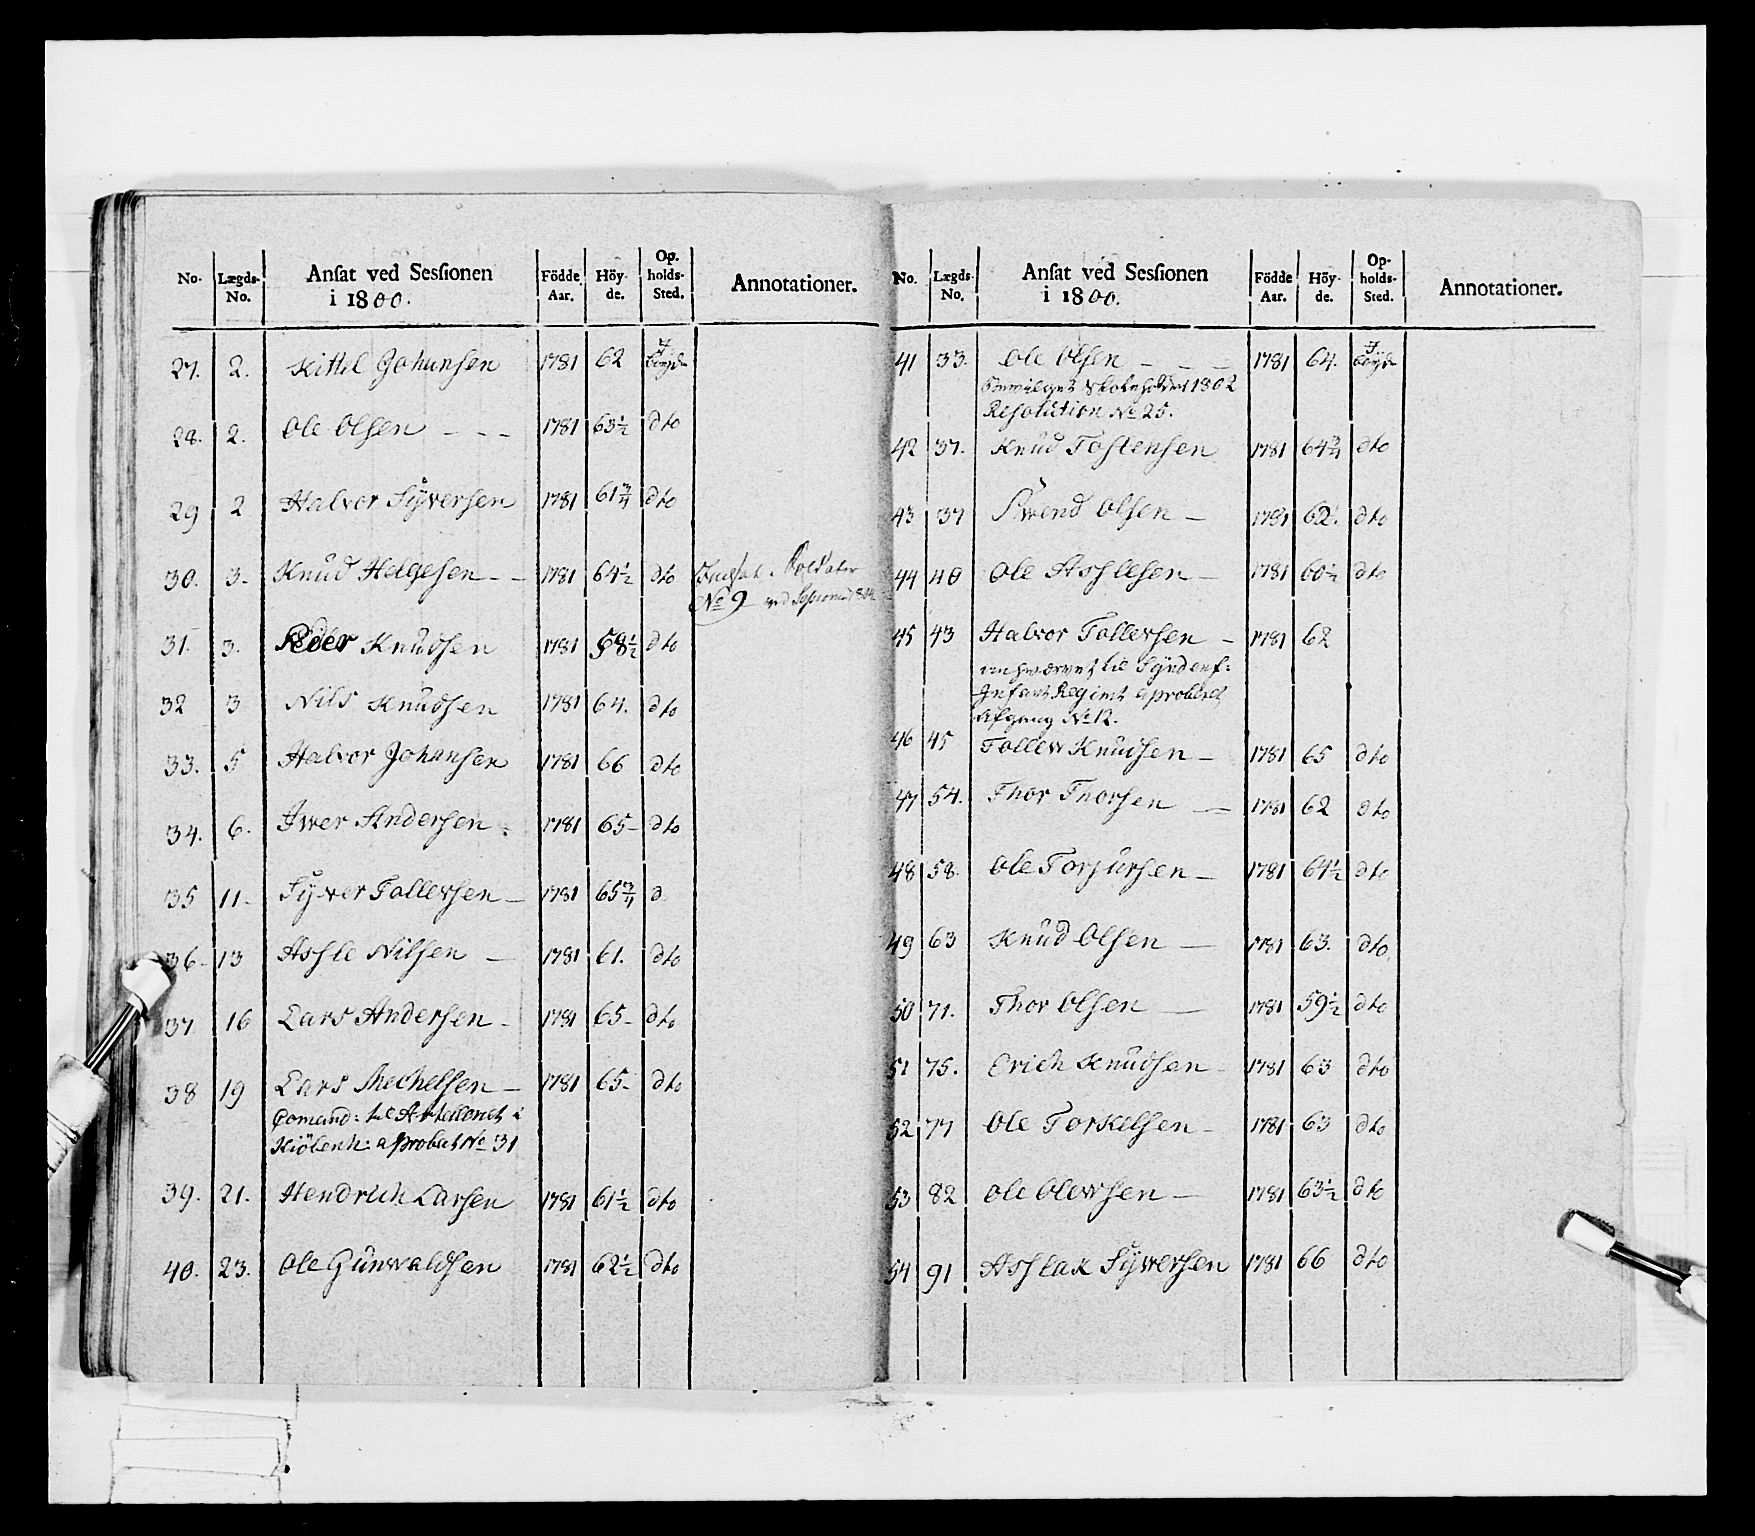 No. Lægds- No. Ansat ved Sessionen i 1800. Födde Aar. Höy- de. Op- holds- Sted. Annotationer.
27. 2. Kittil Johansen 1781 62 i Bøyde
28. 2. Ole Olsen - - - 1781 63½ dto
29 2 Halvor Syversen 1781 61¾ dto
30. 3. Knud Helgesen - - 1781 64½ dto Soldater
No 9 ved Sessionen 1804
31. 3. Peder Knudsen 1781 58½ dto
32 3 Nils Knudsen 1781 64. dto
33. 5 Halvor Johansen 1781 66 dto
34. 6. Iwer Andersen 1781 65 - dto
35 11. Sywer Tollevsen - 1781 65¾ d
36 - 13 Aslle Nilsen - 1781 61. dto
37 16 Lars Andersen - 1781 65 - dto
38 19 Lars Mechelsen - 1781 65 - dto
Comand: til Artelleriet i
Kiöbenh: aprobat No 31
39. 21. Hendrich Larsen 1781 61½ dto
40. 23. Ole Gunwaldsen 1781 62½ dto
No. Lægds- No. Ansat ved Sessionen i 1800. Födde Aar. Höy- de. Op- holds- Sted. Annotationer.
41 33. Ole Olsen - - - 1781 64. i Bøyde
1802
Resolution No 25.
42 37. Knud Tostensen 1781 64¾ dto
43 37 Swend Olsen - 1781 62. dto
44 40 Ole Aslesen - 1781 60½ dto
45 43 Halvor Tollevsen - 1781 62
til Syndenf:
Infant Regimt aproberet
Afgang No 12.
46 45 Tollew Knudsen - 1781 65 dto
47 54. Thor Thorsen - 1781 62 dto
48 58. Ole Torjursen - 1781 64½ dto
49 63 Knud Olsen - 1781 63. dto
50 71. Thor Olsen - 1781 59½ dto
51 75. Erich Knudsen - 1781 63 dto
52 77 Ole Torkelsen - 1781 63 dto
53 82 Ole Olewsen - 1781 63½ dto
54 91 Aslak Sywersen 1781 66 dto